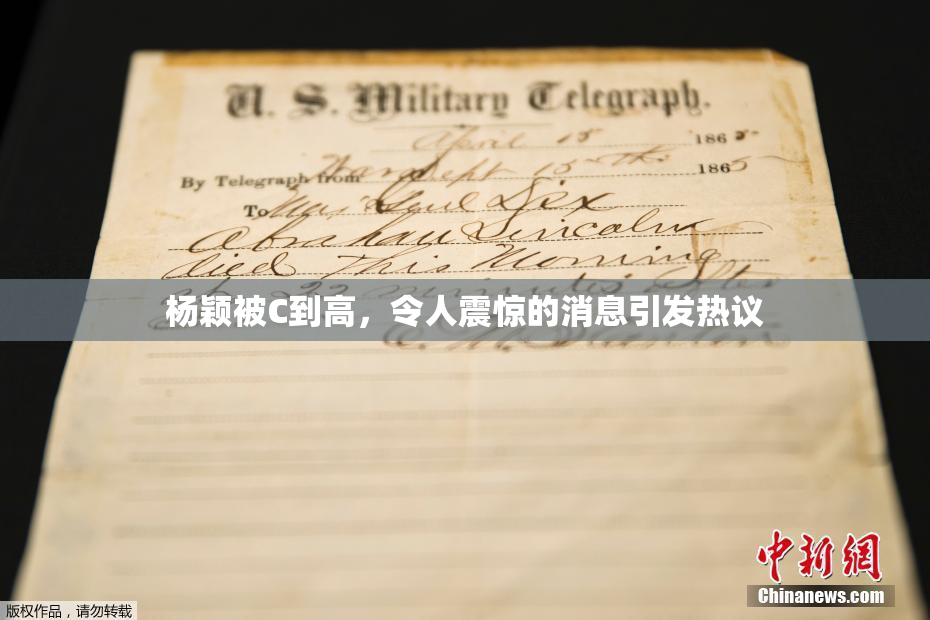 U. S. Military Telegraph.
April 15 1865
By Telegraph from War Dept 15th 1865
To Maj Genl Dix
Abraham Lincoln
died This Morning
at 22 minutes after
杨颖被C到高，令人震惊的消息引发热议
E. M. Stanton
中新网
Chinanews.com
版权作品，请勿转载